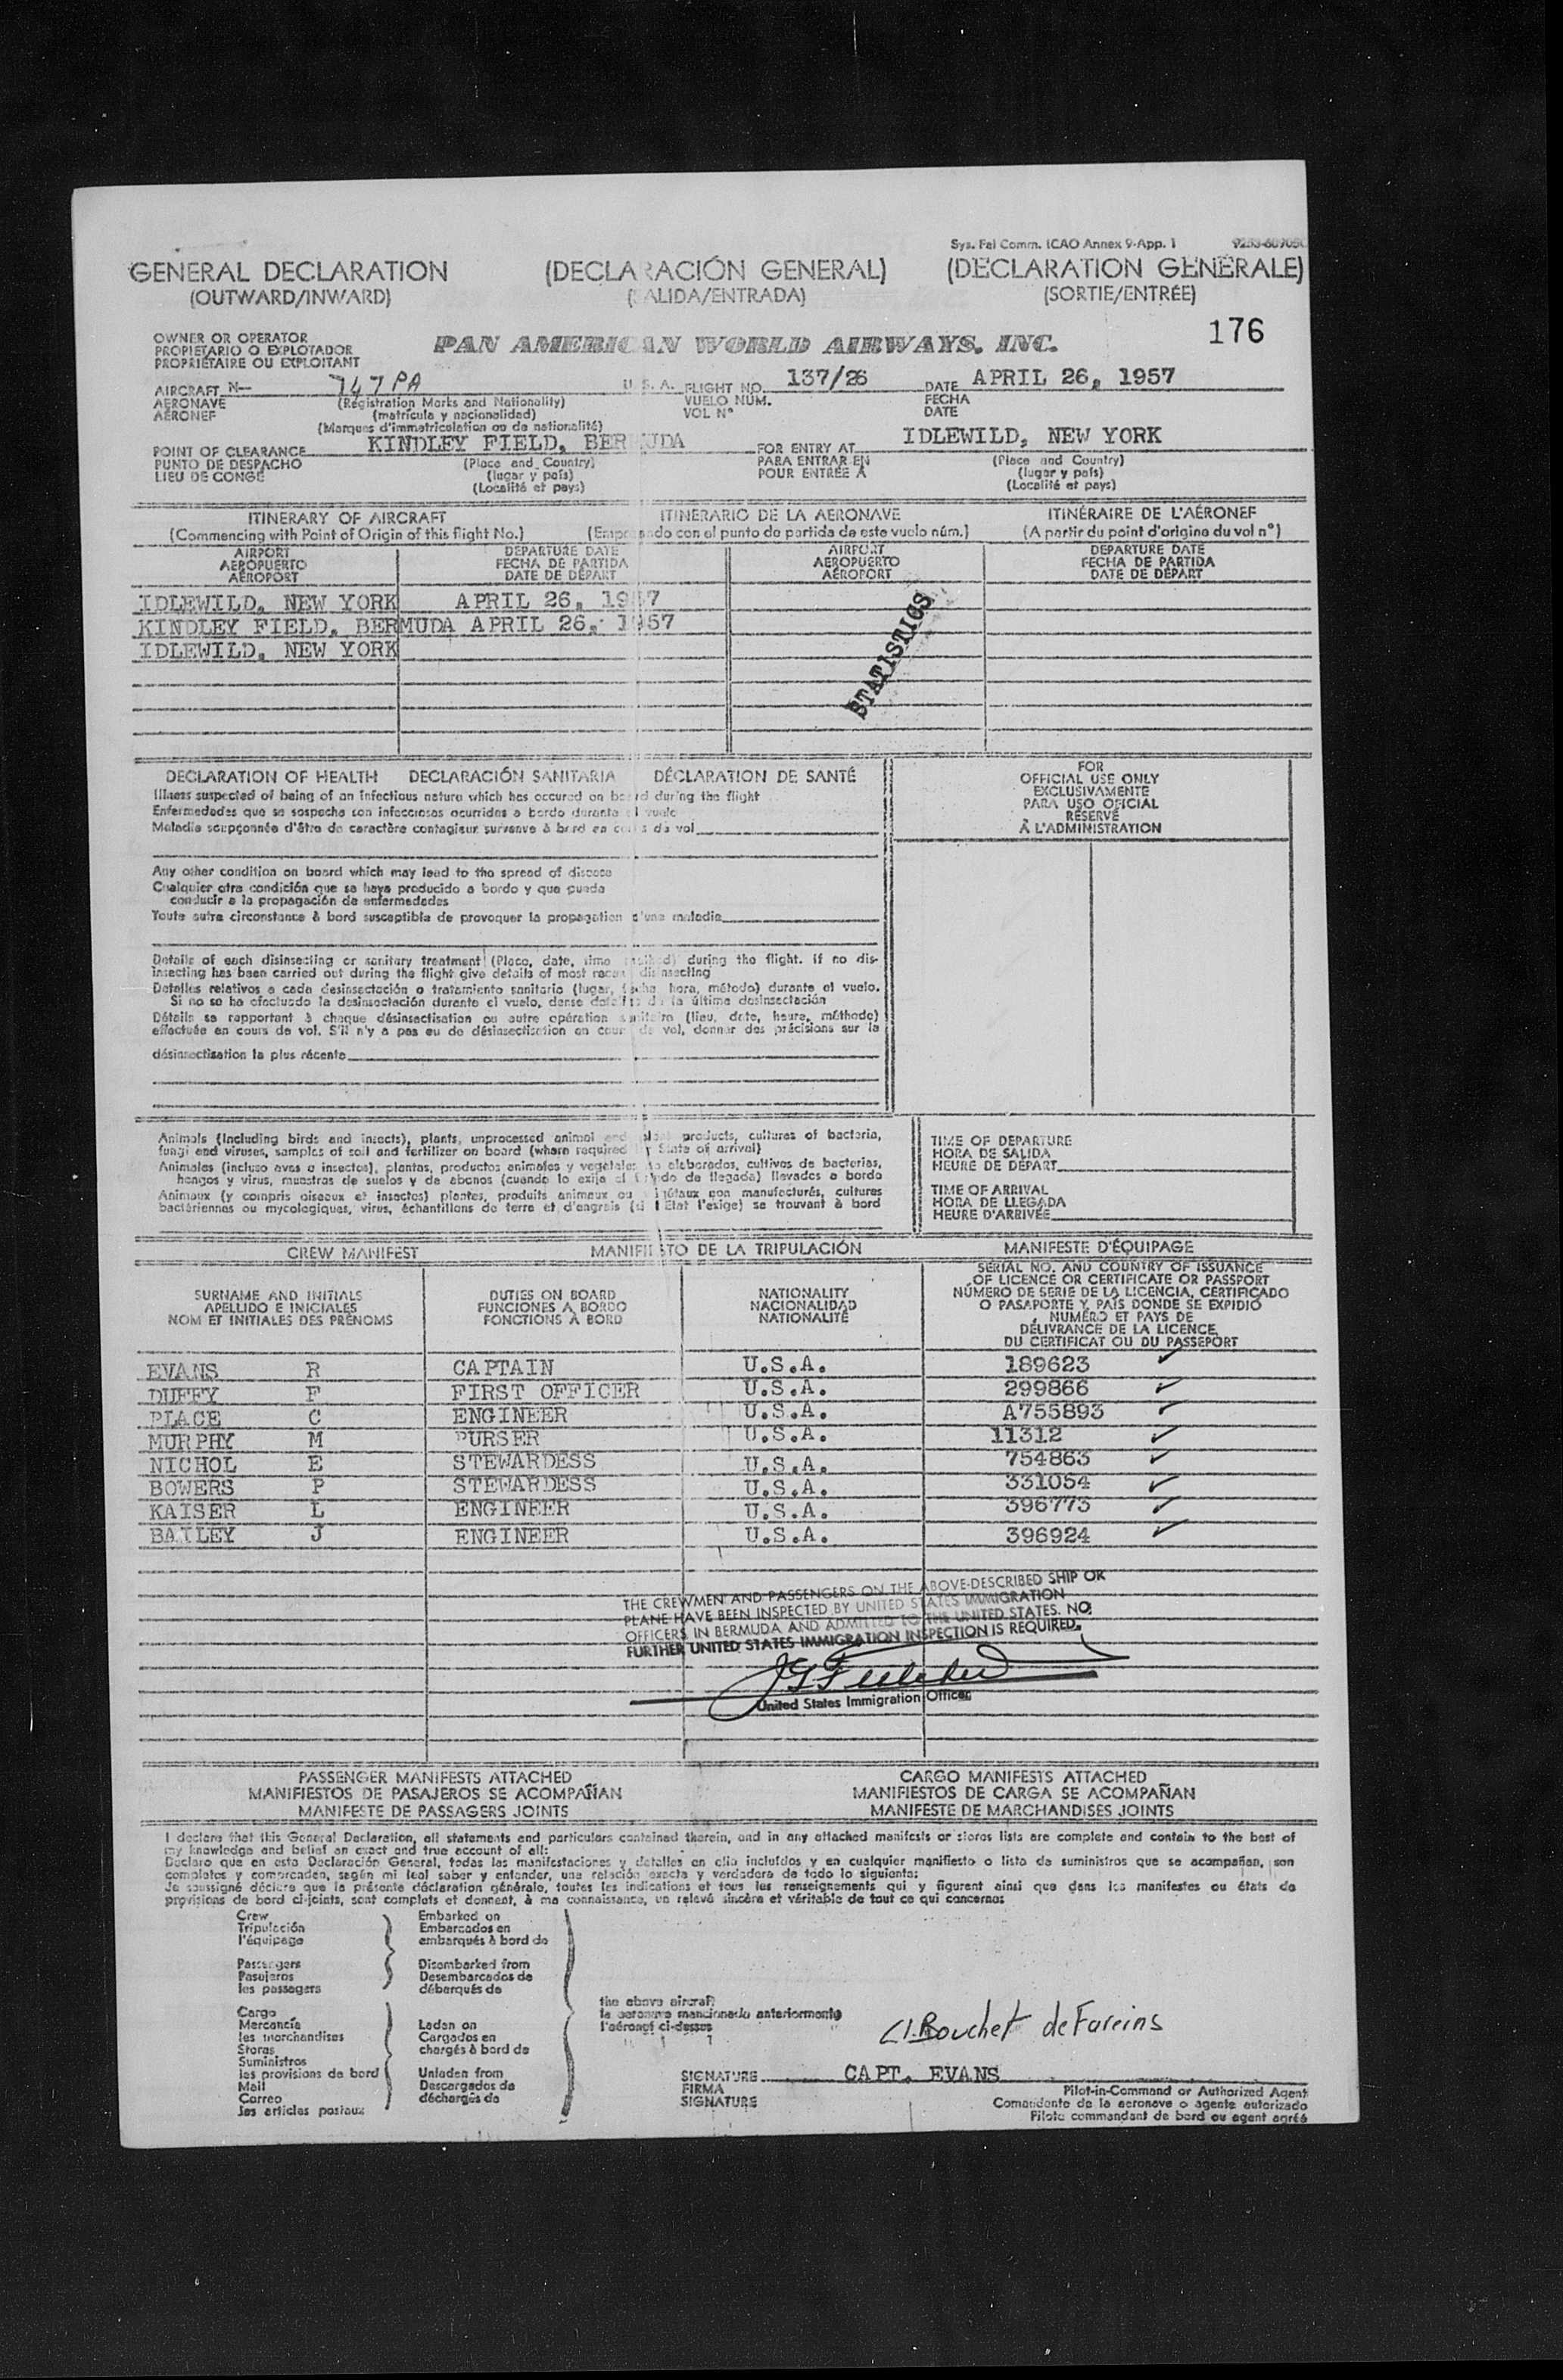 Sys. Fal Comm. ICAO Annex 9-App. 1
GENERAL DECLARATION (DECLARACIÓN GENERAL) (DÉCLARATION GÉNÉRALE)
(OUTWARD/INWARD) (SALIDA/ENTRADA) (SORTIE/ENTRÉE)
176
OWNER OR OPERATOR
PROPIETARIO O EXPLOTADOR
PROPRIÉTAIRE OU EXPLOITANT
PAN AMERICAN WORLD AIRWAYS, INC.
AIRCRAFT N— 747 PA U. S. A. FLIGHT NO. 137/26 DATE APRIL 26, 1957
AERONAVE (Registration Marks and Nationality) VUELO NÚM. FECHA
AÉRONEF (matrícula y nacionalidad) VOL N° DATE
(Marques d'immatriculation ou de nationalité)
POINT OF CLEARANCE KINDLEY FIELD, BERMUDA FOR ENTRY AT IDLEWILD, NEW YORK
PUNTO DE DESPACHO (Place and Country) PARA ENTRAR EN (Place and Country)
LIEU DE CONGÉ (lugar y país) POUR ENTRÉE À (lugar y país)
(Localité et pays) (Localité et pays)
ITINERARY OF AIRCRAFT ITINERARIO DE LA AERONAVE ITINÉRAIRE DE L'AÉRONEF
(Commencing with Point of Origin of this flight No.) (Empezando con el punto de partida de este vuelo núm.) (A partir du point d'origine du vol n°)
AIRPORT DEPARTURE DATE AIRPORT DEPARTURE DATE
AEROPUERTO FECHA DE PARTIDA AEROPUERTO FECHA DE PARTIDA
AÉROPORT DATE DE DÉPART AÉROPORT DATE DE DÉPART
IDLEWILD, NEW YORK APRIL 26, 1957
KINDLEY FIELD, BERMUDA APRIL 26, 1957
IDLEWILD, NEW YORK
STATISTICS
DECLARATION OF HEALTH DECLARACIÓN SANITARIA DÉCLARATION DE SANTÉ
Illness suspected of being of an infectious nature which has occured on board during the flight
Enfermedades que se sospecha son infecciosas ocurridas a bordo durante el vuelo
Maladie soupçonnée d'être de caractère contagieux survenue à bord en cours de vol
Any other condition on board which may lead to the spread of disease
Cualquier otra condición que se haya producido a bordo y que pueda
conducir a la propagación de enfermedades
Toute autre circonstance à bord susceptible de provoquer la propagation d'une maladie
Details of each disinsecting or sanitary treatment (Place, date, time method) during the flight. If no dis-
insecting has been carried out during the flight give details of most recent disinsecting
Detalles relativos a cada desinsectación o tratamiento sanitario (lugar, fecha, hora, método) durante el vuelo.
Si no se ha efectuado la desinsectación durante el vuelo, dense detalles de la última desinsectación
Détails se rapportant à chaque désinsectisation ou autre opération sanitaire (lieu, date, heure, méthode)
effectuée en cours de vol. S'il n'y a pas eu de désinsectisation en cours de vol, donner des précisions sur la
désinsectisation la plus récente
FOR
OFFICIAL USE ONLY
EXCLUSIVAMENTE
PARA USO OFICIAL
RÉSERVÉ
À L'ADMINISTRATION
Animals (including birds and insects), plants, unprocessed animal and plant products, cultures of bacteria,
fungi and viruses, samples of soil and fertilizer on board (where required by State of arrival)
Animales (incluso aves o insectos), plantas, productos animales y vegetales no elaborados, cultivos de bacterias,
hongos y virus, muestras de suelos y de abonos (cuando lo exija el Estado de llegada) llevados a bordo
Animaux (y compris oiseaux et insectes) plantes, produits animaux ou végétaux non manufacturés, cultures
bactériennes ou mycologiques, virus, échantillons de terre et d'engrais (si l'Etat l'exige) se trouvant à bord
TIME OF DEPARTURE
HORA DE SALIDA
HEURE DE DÉPART
TIME OF ARRIVAL
HORA DE LLEGADA
HEURE D'ARRIVÉE
CREW MANIFEST MANIFIESTO DE LA TRIPULACIÓN MANIFESTE D'ÉQUIPAGE
SURNAME AND INITIALS
APELLIDO E INICIALES
NOM ET INITIALES DES PRÉNOMS
DUTIES ON BOARD
FUNCIONES A BORDO
FONCTIONS À BORD
NATIONALITY
NACIONALIDAD
NATIONALITÉ
SERIAL NO. AND COUNTRY OF ISSUANCE
OF LICENCE OR CERTIFICATE OR PASSPORT
NÚMERO DE SERIE DE LA LICENCIA, CERTIFICADO
O PASAPORTE Y PAÍS DONDE SE EXPIDIÓ
NUMÉRO ET PAYS DE
DÉLIVRANCE DE LA LICENCE,
DU CERTIFICAT OU DU PASSEPORT
EVANS R CAPTAIN U.S.A. 189623 ✓
DUFFY F FIRST OFFICER U.S.A. 299866 ✓
PLACE C ENGINEER U.S.A. A755893 ✓
MURPHY M PURSER U.S.A. 11312 ✓
NICHOL E STEWARDESS U.S.A. 754863 ✓
BOWERS P STEWARDESS U.S.A. 331054 ✓
KAISER L ENGINEER U.S.A. 396773 ✓
BAILEY J ENGINEER U.S.A. 396924 ✓
THE CREWMEN AND PASSENGERS ON THE ABOVE-DESCRIBED SHIP OR
PLANE HAVE BEEN INSPECTED BY UNITED STATES IMMIGRATION
OFFICERS IN BERMUDA AND ADMITTED TO THE UNITED STATES. NO
FURTHER UNITED STATES IMMIGRATION INSPECTION IS REQUIRED.
United States Immigration Officer
PASSENGER MANIFESTS ATTACHED CARGO MANIFESTS ATTACHED
MANIFIESTOS DE PASAJEROS SE ACOMPAÑAN MANIFIESTOS DE CARGA SE ACOMPAÑAN
MANIFESTE DE PASSAGERS JOINTS MANIFESTE DE MARCHANDISES JOINTS
I declare that this General Declaration, all statements and particulars contained therein, and in any attached manifests or stores lists are complete and contain to the best of
my knowledge and belief an exact and true account of all:
Declaro que en esta Declaración General, todas las manifestaciones y detalles en ella incluídos y en cualquier manifiesto o lista de suministros que se acompañan, son
completos y comprenden, según mi leal saber y entender, una relación exacta y verdadera de todo lo siguiente:
Je soussigné déclare que la présente déclaration générale, toutes les indications et tous les renseignements qui y figurent ainsi que dans les manifestes ou états de
provisions de bord ci-joints, sont complets et donnent, à ma connaissance, un relevé sincère et véritable de tout ce qui concerne:
Crew
Tripulación
l'équipage
Embarked on
Embarcados en
embarqués à bord de
Passengers
Pasajeros
les passagers
Disembarked from
Desembarcados de
débarqués de
Cargo
Mercancía
les marchandises
Stores
Suministros
les provisions de bord
Mail
Correo
les articles postaux
Laden on
Cargados en
chargés à bord de
Unladen from
Descargados de
déchargés de
the above aircraft
la aeronave mencionada anteriormente
l'aéronef ci-dessus
Cl. Bouchet de Fareins
SIGNATURE CAPT. EVANS
FIRMA
SIGNATURE
Pilot-in-Command or Authorized Agent
Comandante de la aeronave o agente autorizado
Pilote commandant de bord ou agent agréé